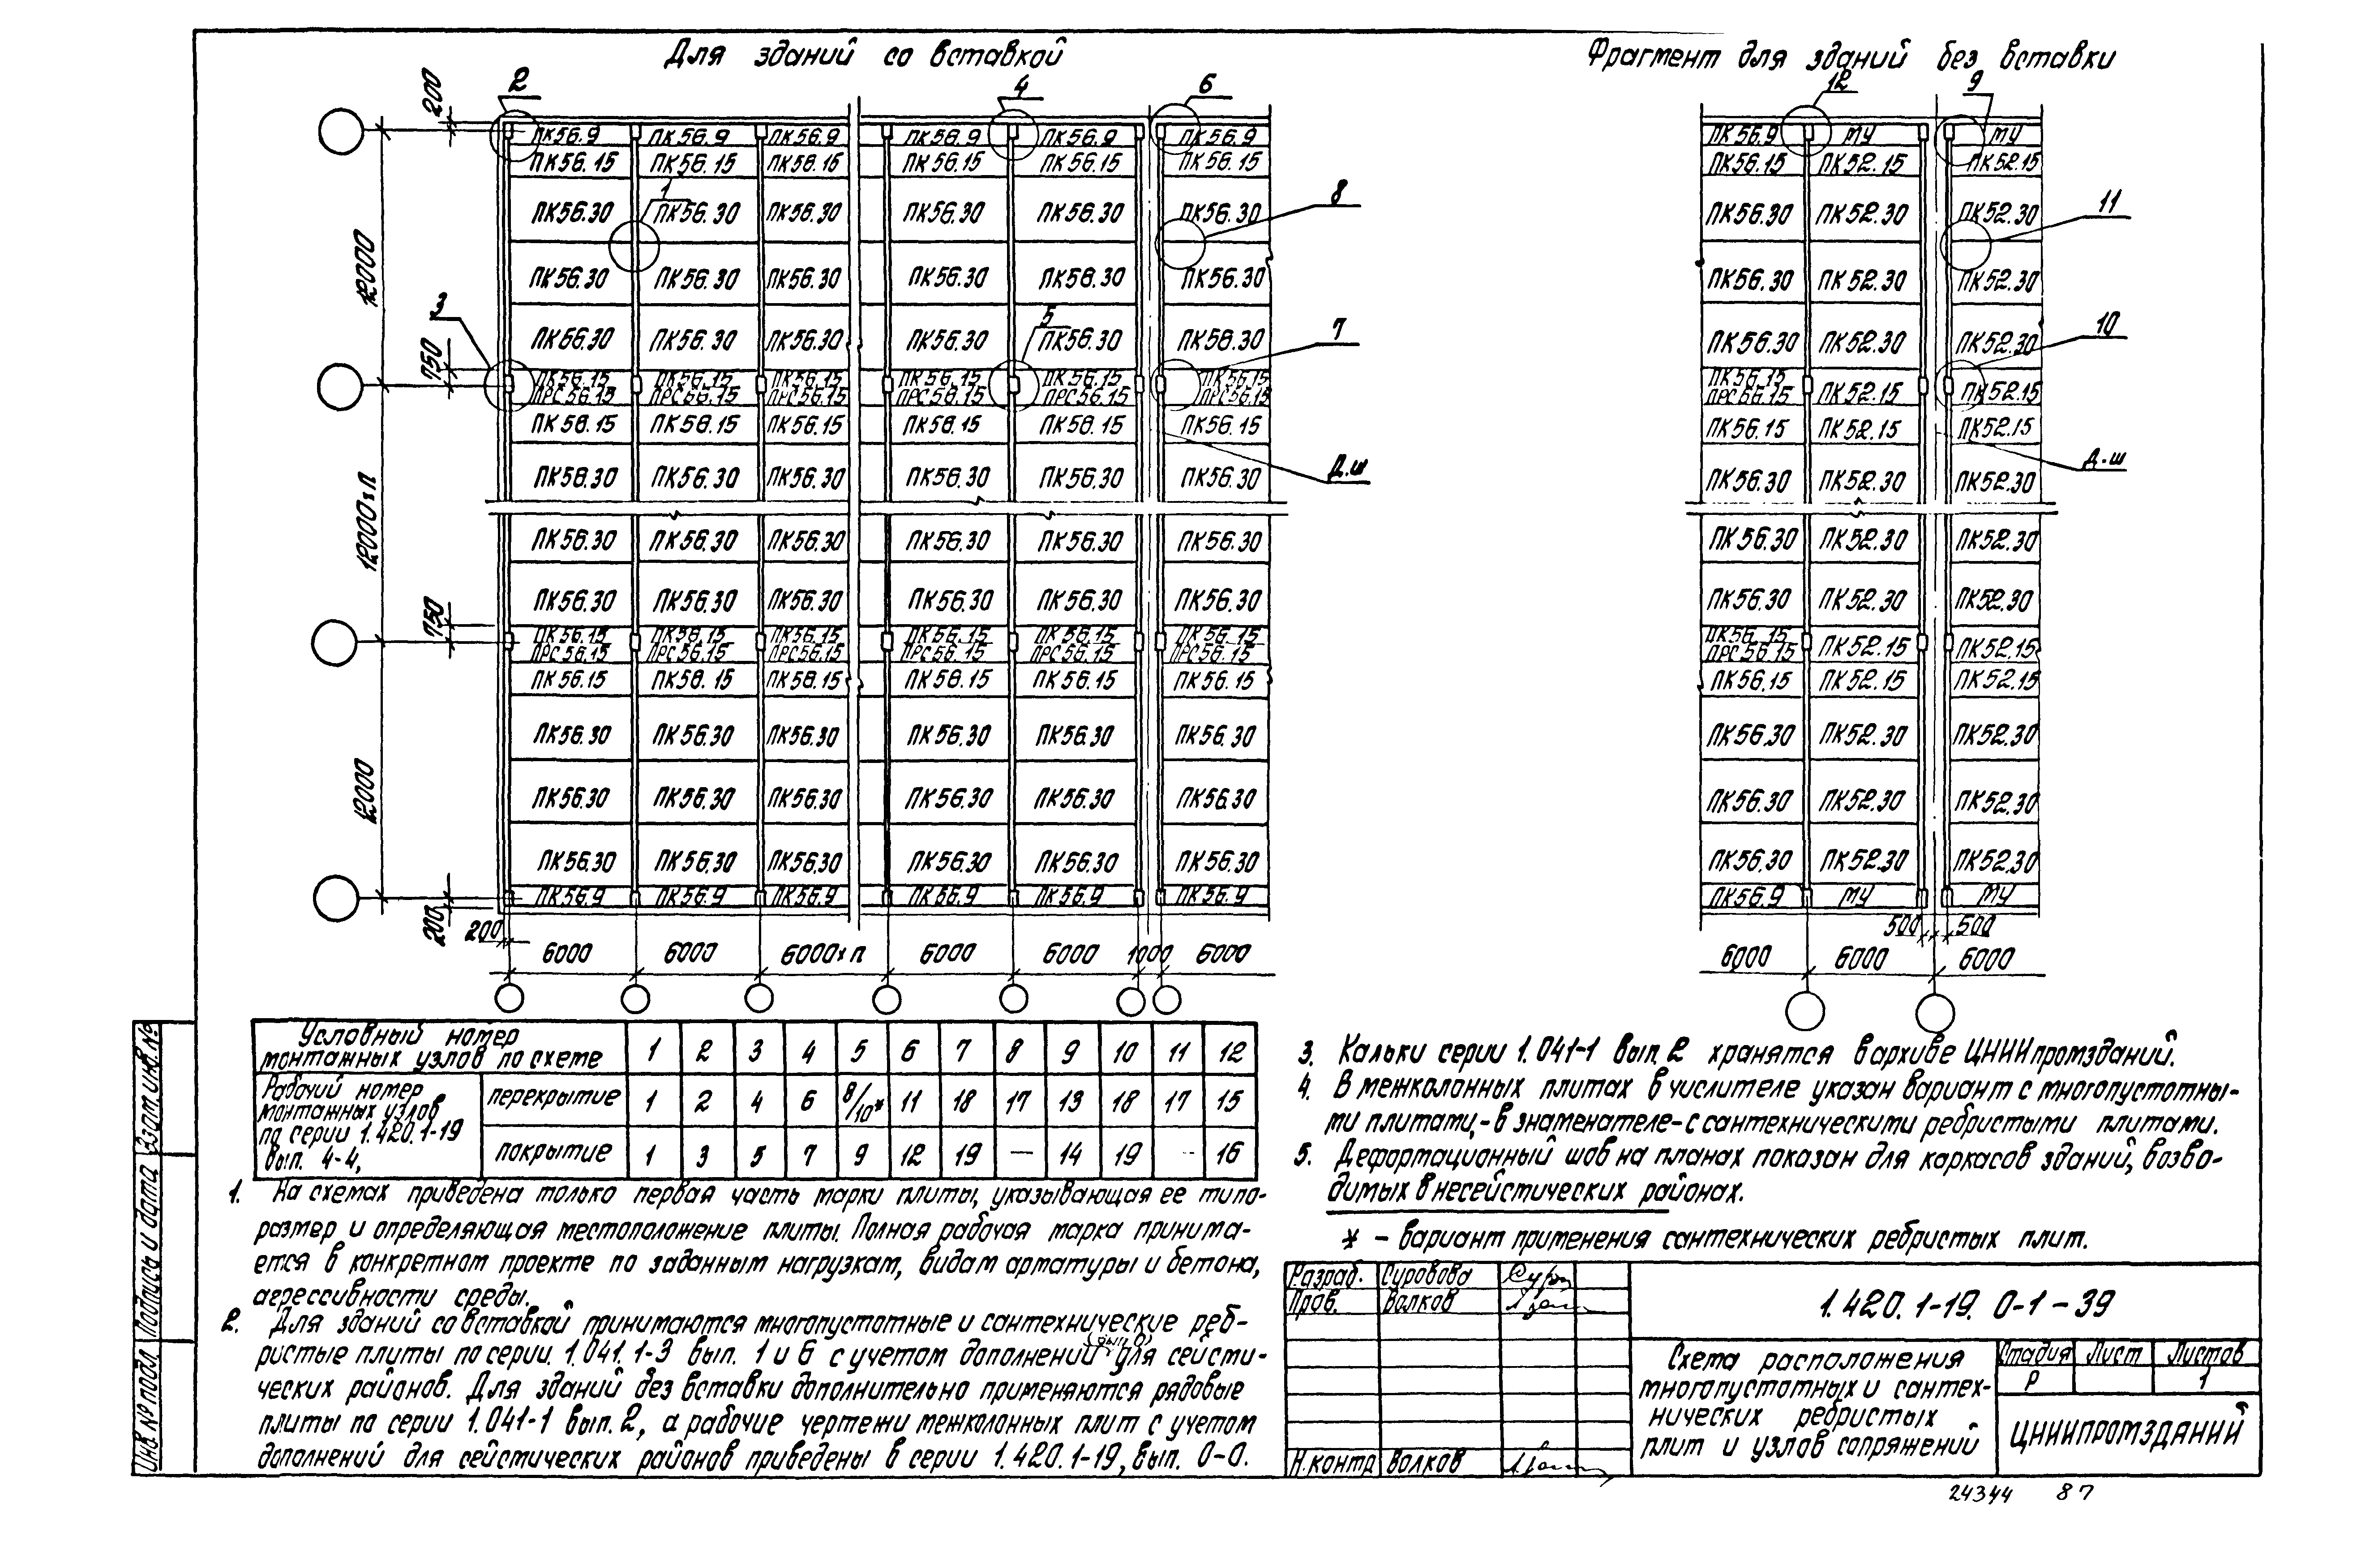 Для зданий со вставкой
Фрагмент для зданий без вставки
2 4 6 12 9
200
ПК56.9 ПК56.9 ПК56.9 ПК56.9 ПК56.9 ПК56.9 ПК56.9 МУ МУ
ПК56.15 ПК56.15 ПК56.15 ПК56.15 ПК56.15 ПК56.15 ПК56.15 ПК52.15 ПК52.15
1 8 11
ПК56.30 ПК56.30 ПК56.30 ПК56.30 ПК56.30 ПК56.30 ПК56.30 ПК52.30 ПК52.30
12000
ПК56.30 ПК56.30 ПК56.30 ПК56.30 ПК56.30 ПК56.30 ПК56.30 ПК52.30 ПК52.30
3 5 7 10
ПК56.30 ПК56.30 ПК56.30 ПК56.30 ПК56.30 ПК56.30 ПК56.30 ПК52.30 ПК52.30
750
ПК56.15 ПК56.15 ПК56.15 ПК56.15 ПК56.15 ПК56.15 ПК56.15 ПК52.15 ПК52.15
ПРС56.15 ПРС56.15 ПРС56.15 ПРС56.15 ПРС56.15 ПРС56.15 ПРС56.15
ПК56.15 ПК56.15 ПК56.15 ПК56.15 ПК56.15 ПК56.15 ПК56.15 ПК52.15 ПК52.15
Д.ш Д.ш
ПК56.30 ПК56.30 ПК56.30 ПК56.30 ПК56.30 ПК56.30 ПК56.30 ПК52.30 ПК52.30
12000 х п
ПК56.30 ПК56.30 ПК56.30 ПК56.30 ПК56.30 ПК56.30 ПК56.30 ПК52.30 ПК52.30
ПК56.30 ПК56.30 ПК56.30 ПК56.30 ПК56.30 ПК56.30 ПК56.30 ПК52.30 ПК52.30
750
ПК56.15 ПК56.15 ПК56.15 ПК56.15 ПК56.15 ПК56.15 ПК56.15 ПК52.15 ПК52.15
ПРС56.15 ПРС56.15 ПРС56.15 ПРС56.15 ПРС56.15 ПРС56.15 ПРС56.15
ПК56.15 ПК56.15 ПК56.15 ПК56.15 ПК56.15 ПК56.15 ПК56.15 ПК52.15 ПК52.15
ПК56.30 ПК56.30 ПК56.30 ПК56.30 ПК56.30 ПК56.30 ПК56.30 ПК52.30 ПК52.30
12000
ПК56.30 ПК56.30 ПК56.30 ПК56.30 ПК56.30 ПК56.30 ПК56.30 ПК52.30 ПК52.30
ПК56.30 ПК56.30 ПК56.30 ПК56.30 ПК56.30 ПК56.30 ПК56.30 ПК52.30 ПК52.30
ПК56.9 ПК56.9 ПК56.9 ПК56.9 ПК56.9 ПК56.9 ПК56.9 МУ МУ
200 200 500 500
6000 6000 6000х п 6000 6000 1000 6000 6000 6000 6000
Условный номер
монтажных узлов по схеме 1 2 3 4 5 6 7 8 9 10 11 12
Рабочий номер
монтажных узлов
по серии 1.420.1-19
вып. 4-4,
перекрытие 1 2 4 6 8/10* 11 18 17 13 18 17 15
покрытие 1 3 5 7 9 12 19 — 14 19 -- 16
1. На схемах приведена только первая часть марки плиты, указывающая ее типо-
размер и определяющая местоположение плиты. Полная рабочая марка принима-
ется в конкретном проекте по заданным нагрузкам, видам арматуры и бетона,
агрессивности среды.
2. Для зданий со вставкой принимаются многопустотные и сантехнические реб-
ристые плиты по серии 1.041.1-3 вып. 1 и 6 с учетом дополнений (вып.0) для сейсми-
ческих районов. Для зданий без вставки дополнительно применяются рядовые
плиты по серии 1.041-1 вып. 2, а рабочие чертежи межколонных плит с учетом
дополнений для сейсмических районов приведены в серии 1.420.1-19, вып. 0-0.
3. Кальки серии 1.041-1 вып. 2 хранятся в архиве ЦНИИпромзданий.
4. В межколонных плитах в числителе указан вариант с многопустотны-
ми плитами,-в знаменателе-с сантехническими ребристыми плитами.
5. Деформационный шов на планах показан для каркасов зданий, возво-
димых в несейсмических районах.
* - вариант применения сантехнических ребристых плит.
Разраб. Суровова
Пров. Волков
Н.контр Волков
1.420.1-19. 0-1-39
Схема расположения
многопустотных и сантех-
нических ребристых
плит и узлов сопряжений
Стадия Лист Листов
Р 1
ЦНИИПРОМЗДАНИЙ
Инв.№ подл. Подпись и дата Взам.инв.№
24344 87